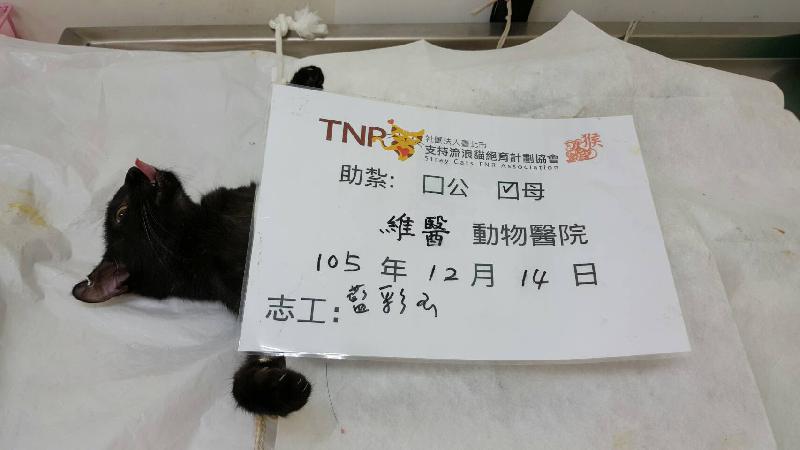 TNR 社團法人臺北市
支持流浪貓絕育計劃協會
Stray Cats TNR Association
猴
助紮: □公 ☑母
維醫 動物醫院
105 年 12 月 14 日
志工: 藍彩